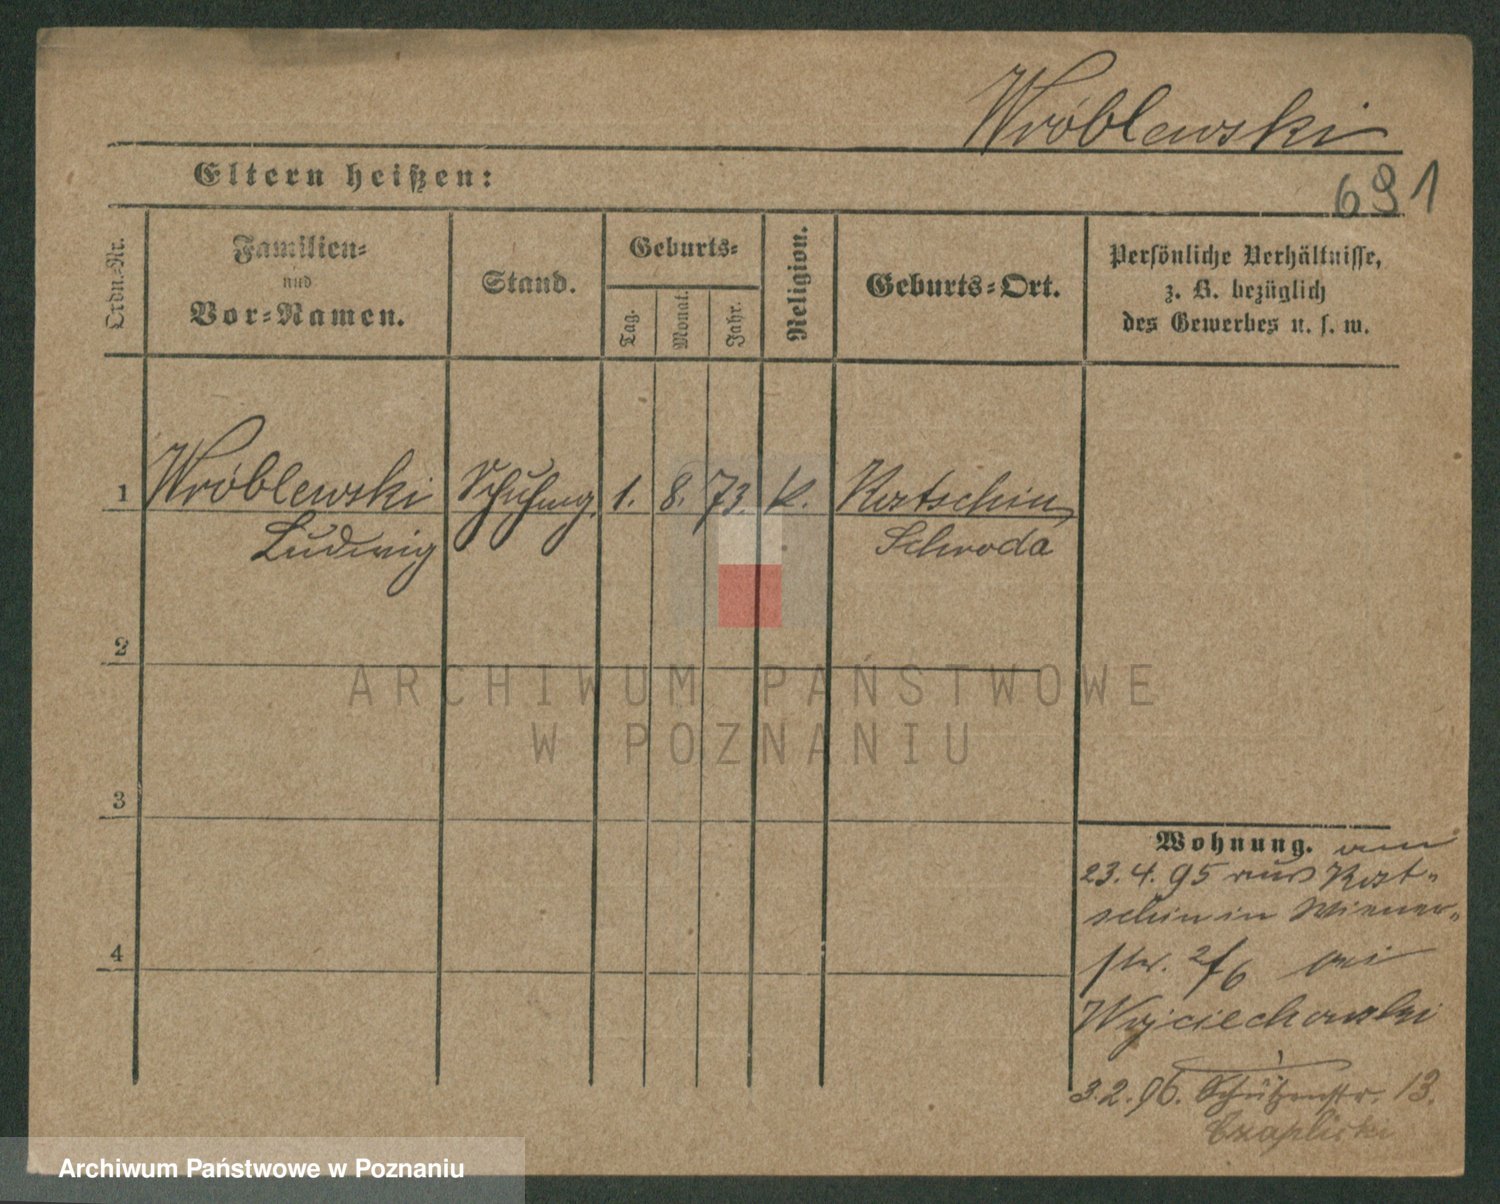 Wróblewski
Eltern heißen:
691
Ordn.-Nr.
Familien-
und
Vor-Namen.
Stand.
Geburts-
Tag.
Monat.
Jahr.
Religion.
Geburts-Ort.
Persönliche Verhältnisse,
z. B. bezüglich
des Gewerbes u. s. w.
1 Wróblewski 1. 8. 73. k. Kostschin,
Ludwig Schroda
2
ARCHIWUM PAŃSTWOWE
W POZNANIU
3
Wohnung. am
23.4.95 aus Kost-
schin in Wiener-
str. 2/6 bei
Wojciechowski
3.2.96. Schützenstr. 13.
Czaplicki
4
Archiwum Państwowe w Poznaniu